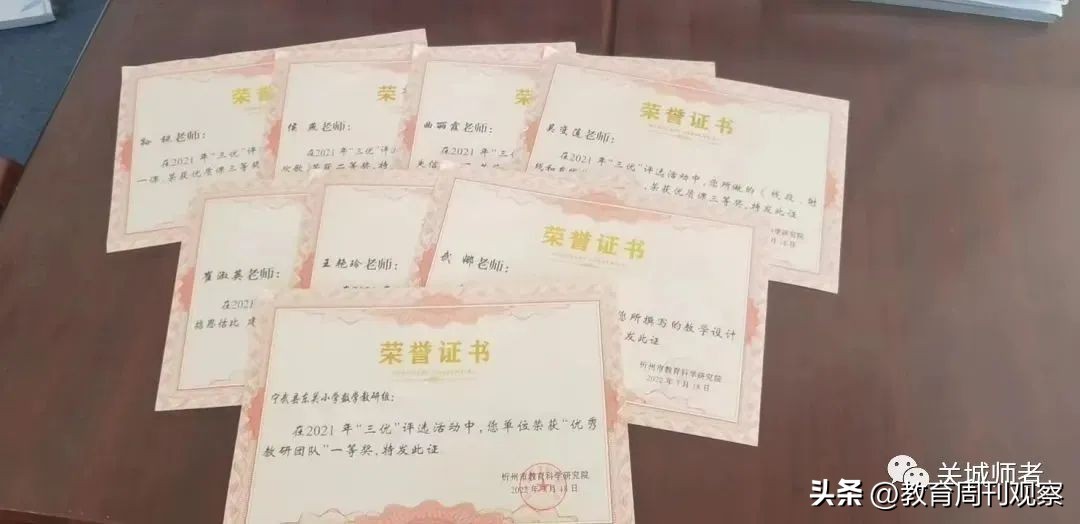 荣誉
孙 艳老师：
在2021年“三优”评
一课，荣获优质课三等奖
荣
侯 燕老师：
在2021年“三优”评
荣获二等奖，特
荣
曲丽霞老师：
在2021年“三优”
荣誉证书
老师：
在2021年“三优”评选活动中，您所做的《线段、射
荣获优质课三等奖，特发此证
研究院
崔淑英老师：
在202
王艳玲老师：
荣誉证书
武 娜老师：
您所撰写的教学设计
发此证
忻州市教育科学研究院
2022年7月18日
荣誉证书
宁武县东关小学数学教研组：
在2021年“三优”评选活动中，您单位荣获“优秀
教研团队”一等奖，特发此证
忻州市教育科学研究院
2022年7月18日
关城师者
头条 @教育周刊观察